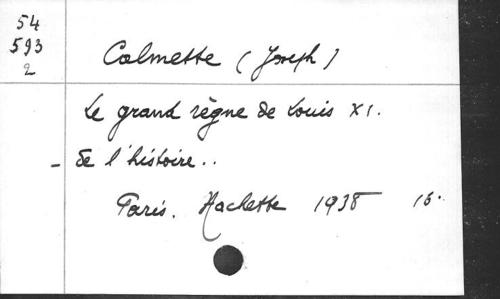 54
593
2
Calmette (Joseph)
Le grand règne de Louis XI.
- de l'histoire..
Paris. Hachette 1938 16.